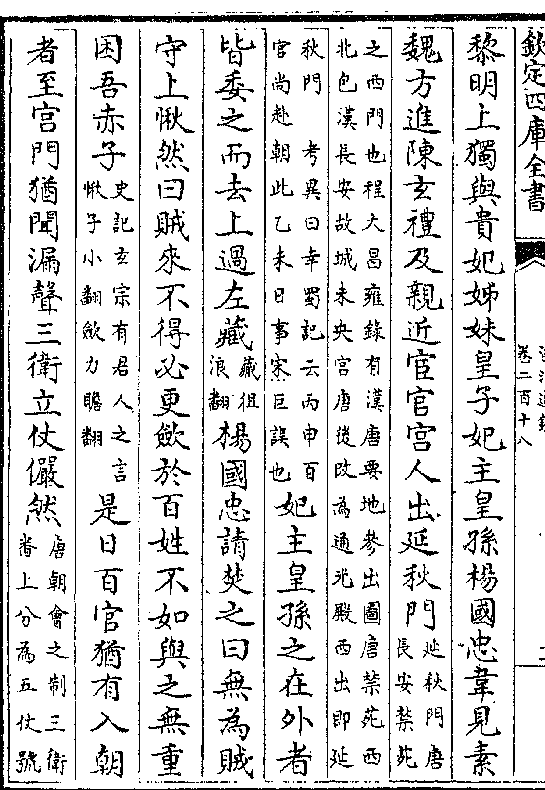 欽定四庫全書
卷二百十八
黎明上獨與貴妃姊妹皇子妃主皇孫楊國忠韋見素
魏方進陳玄禮及親近宦官宮人出延秋門延秋門唐長安禁苑
之西門也程大昌雍錄有漢唐要地參出圖唐禁苑西
北包漢長安故城未央宮唐後改為通光殿西出即延
秋門 考異曰幸蜀記云丙申百官尚赴朝此乙未日事宋巨誤也妃主皇孫之在外者
皆委之而去上過左藏藏徂浪翻楊國忠請焚之曰無為賊
守上愀然曰賊來不得必更斂於百姓不如與之無重
困吾赤子史記玄宗有君人之言愀子小翻斂力贍翻是日百官猶有入朝
者至宮門猶聞漏聲三衛立仗儼然唐朝會之制三衛番上分為五仗號